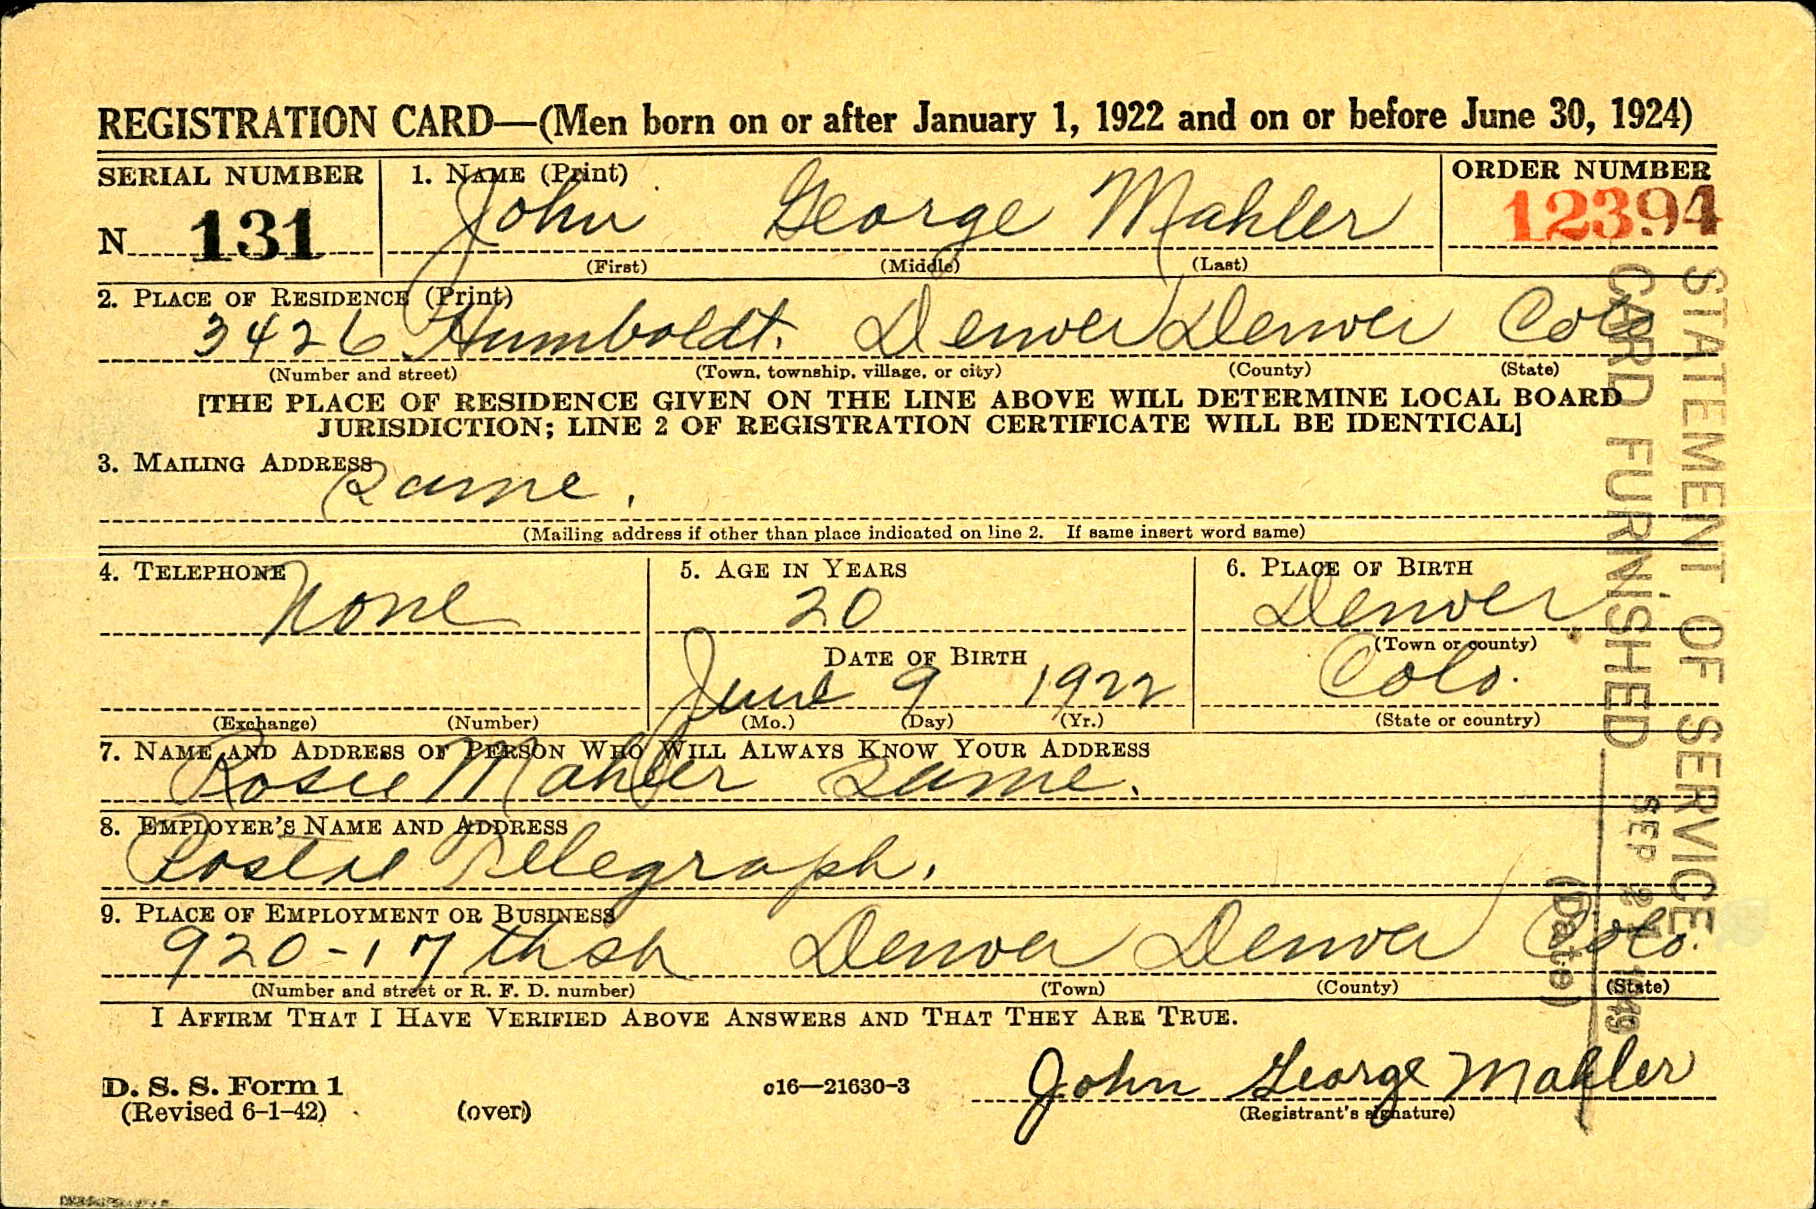 REGISTRATION CARD—(Men born on or after January 1, 1922 and on or before June 30, 1924)
SERIAL NUMBER 1. NAME (Print) ORDER NUMBER
N 131 John George Mahler 12394
(First) (Middle) (Last)
2. PLACE OF RESIDENCE (Print)
3426 Humboldt. Denver Denver Colo
(Number and street) (Town, township, village, or city) (County) (State)
[THE PLACE OF RESIDENCE GIVEN ON THE LINE ABOVE WILL DETERMINE LOCAL BOARD
JURISDICTION; LINE 2 OF REGISTRATION CERTIFICATE WILL BE IDENTICAL]
3. MAILING ADDRESS
Same.
(Mailing address if other than place indicated on line 2. If same insert word same)
4. TELEPHONE 5. AGE IN YEARS 6. PLACE OF BIRTH
None 20 Denver
(Town or county)
DATE OF BIRTH
June 9 1922 Colo.
(Exchange) (Number) (Mo.) (Day) (Yr.) (State or country)
7. NAME AND ADDRESS OF PERSON WHO WILL ALWAYS KNOW YOUR ADDRESS
Rosie Mahler Same.
8. EMPLOYER'S NAME AND ADDRESS
Postal Telegraph.
9. PLACE OF EMPLOYMENT OR BUSINESS
920-17th St Denver Denver Colo.
(Number and street or R. F. D. number) (Town) (County) (State)
I AFFIRM THAT I HAVE VERIFIED ABOVE ANSWERS AND THAT THEY ARE TRUE.
John George Mahler
D. S. S. Form 1 c16—21630-3
(Revised 6-1-42) (over) (Registrant's signature)
STATEMENT OF SERVICE
CARD FURNISHED
SEP
(Date)